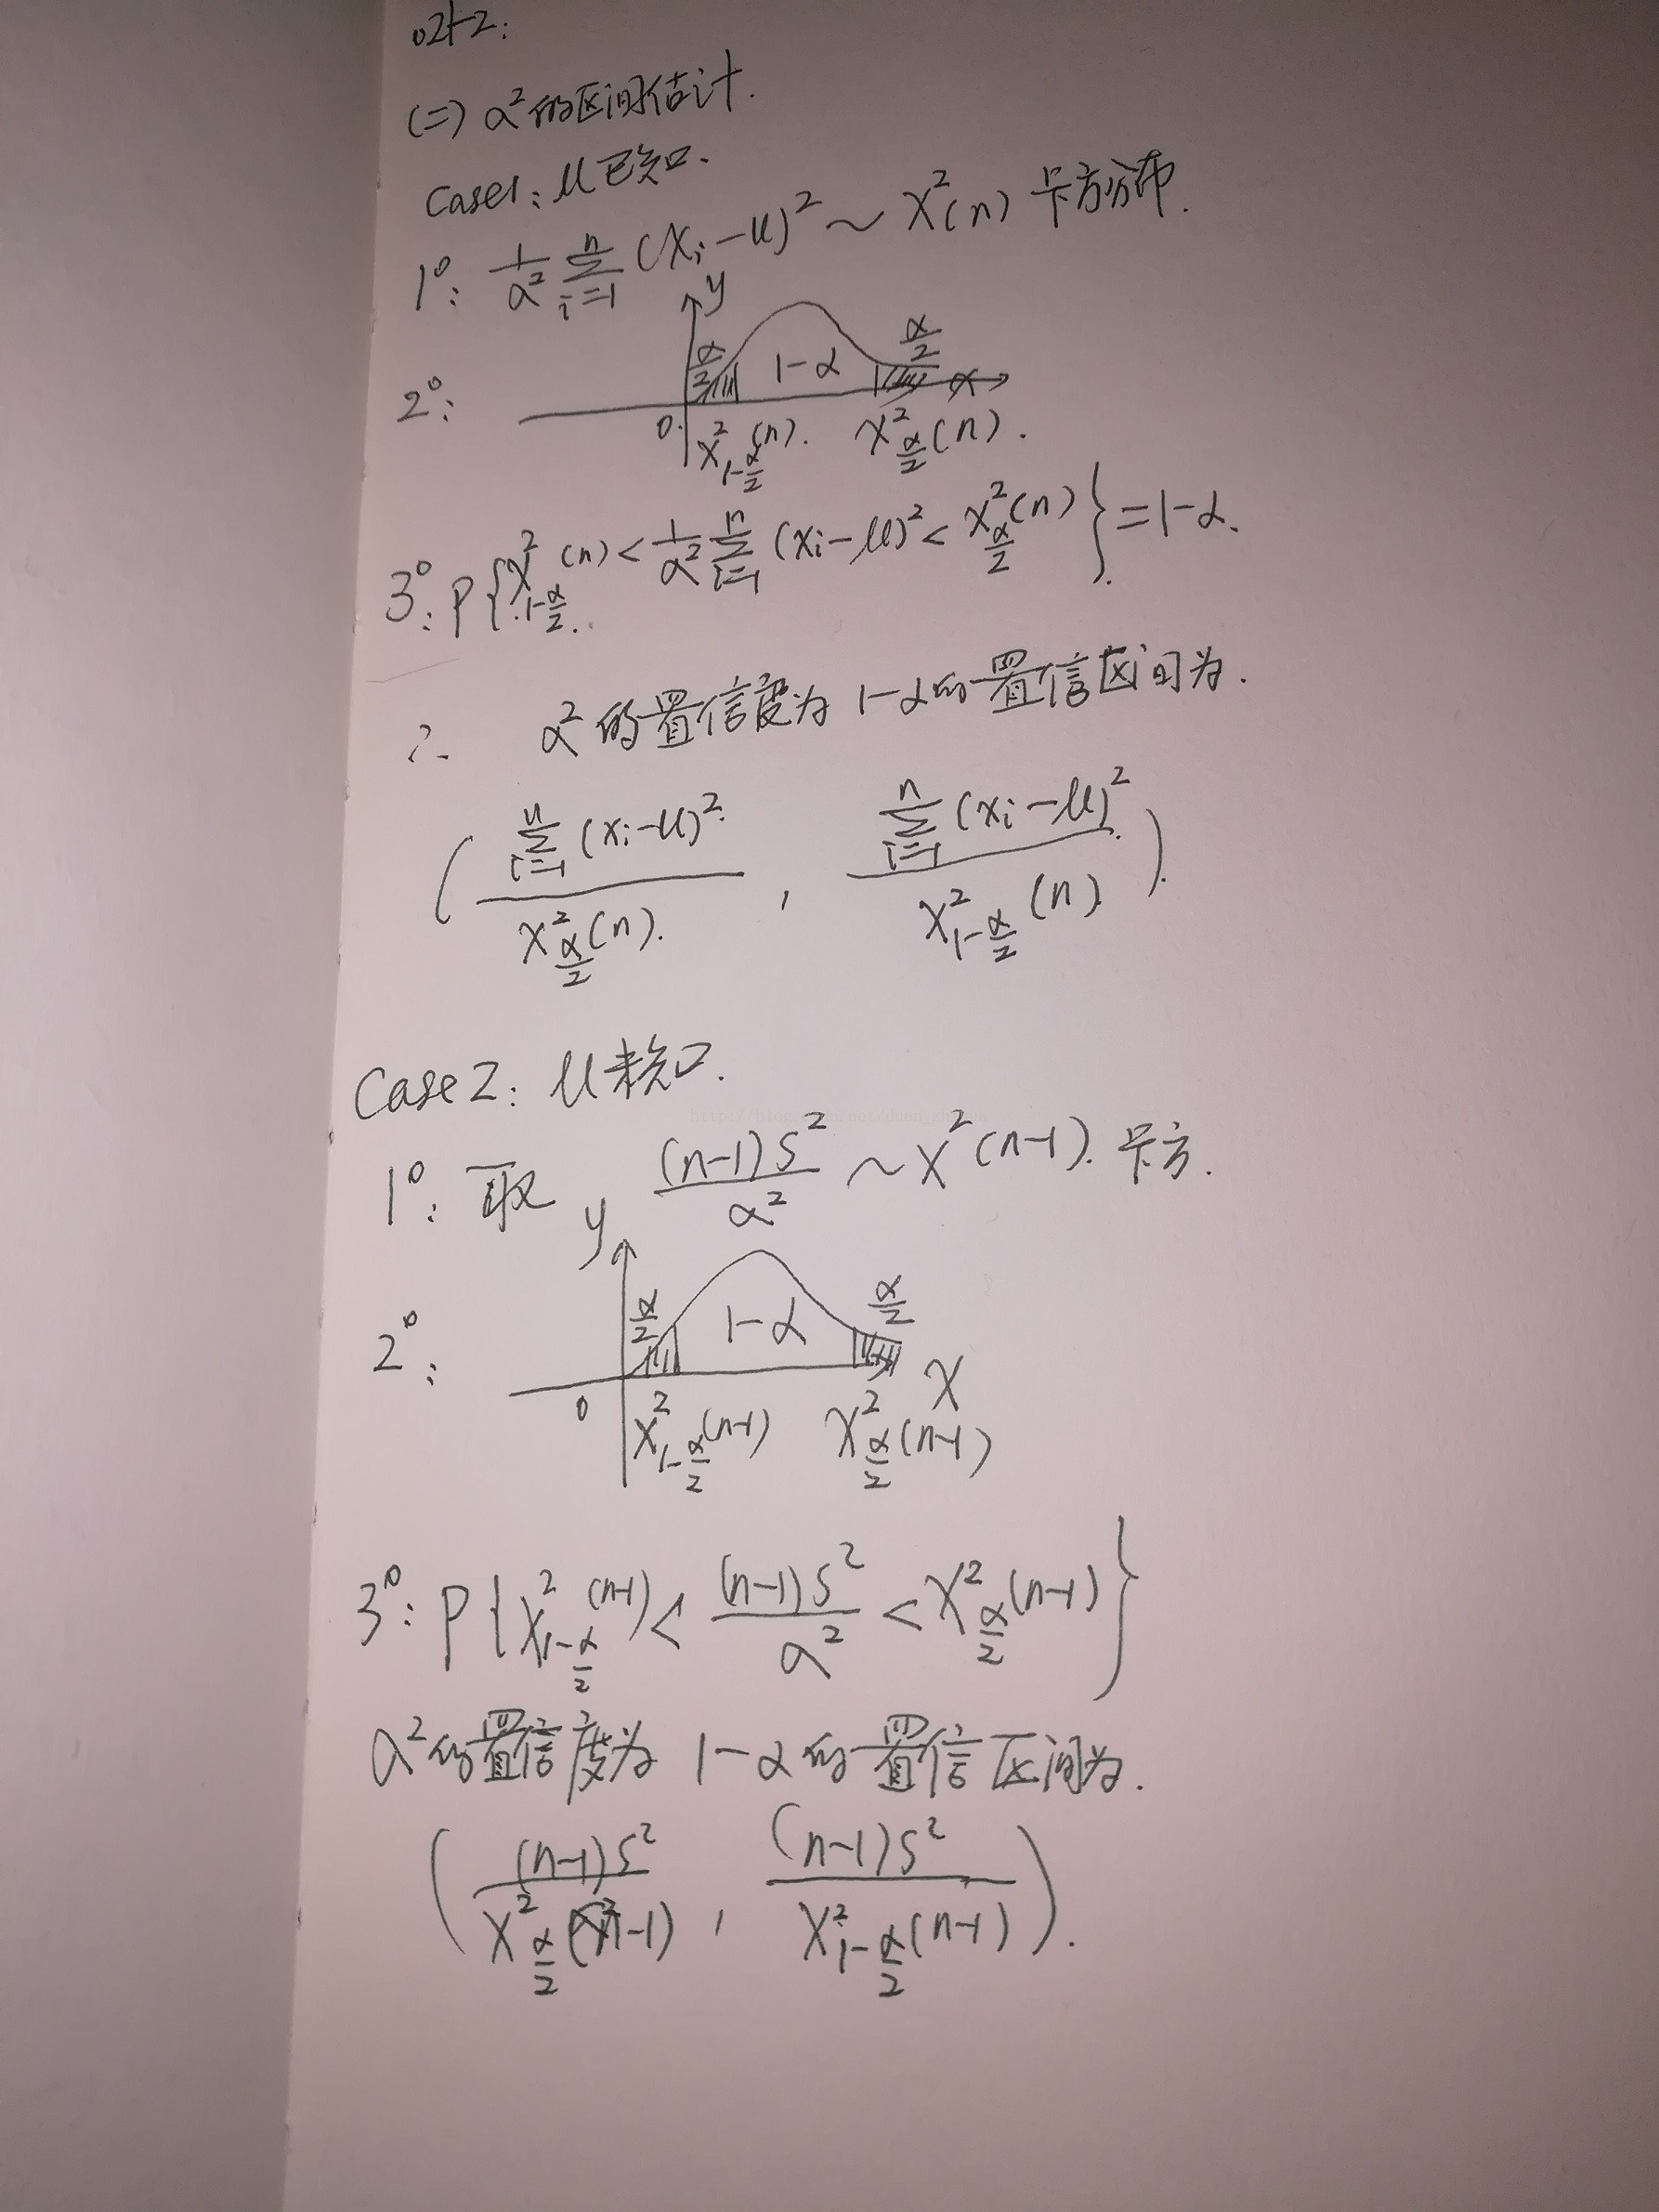 (二) α²的区间估计.
Case1: μ已知.
1°: 1/α² ∑_{i=1}^{n} (Xᵢ-μ)² ~ X²(n) 卡方分布.
y
α/2 1-α α/2
2°:
0 X²_{1-α/2}(n). X²_{α/2}(n).
3°: P{X²_{1-α/2}(n) < 1/α² ∑_{i=1}^{n} (xᵢ-μ)² < X²_{α/2}(n)} = 1-α.
∴ α²的置信度为1-α的置信区间为.
( ∑_{i=1}^{n} (xᵢ-μ)² / X²_{α/2}(n) , ∑_{i=1}^{n} (xᵢ-μ)² / X²_{1-α/2}(n) )
Case2: μ未知.
1°: 取 (n-1)S²/α² ~ X²(n-1). 卡方.
y
α/2 1-α α/2
2°: X
0 X²_{1-α/2}(n-1) X²_{α/2}(n-1)
3°: P{X²_{1-α/2}(n-1) < (n-1)S²/α² < X²_{α/2}(n-1)}
α²的置信度为 1-α的置信区间为.
( (n-1)S² / X²_{α/2}(n-1) , (n-1)S² / X²_{1-α/2}(n-1) ).